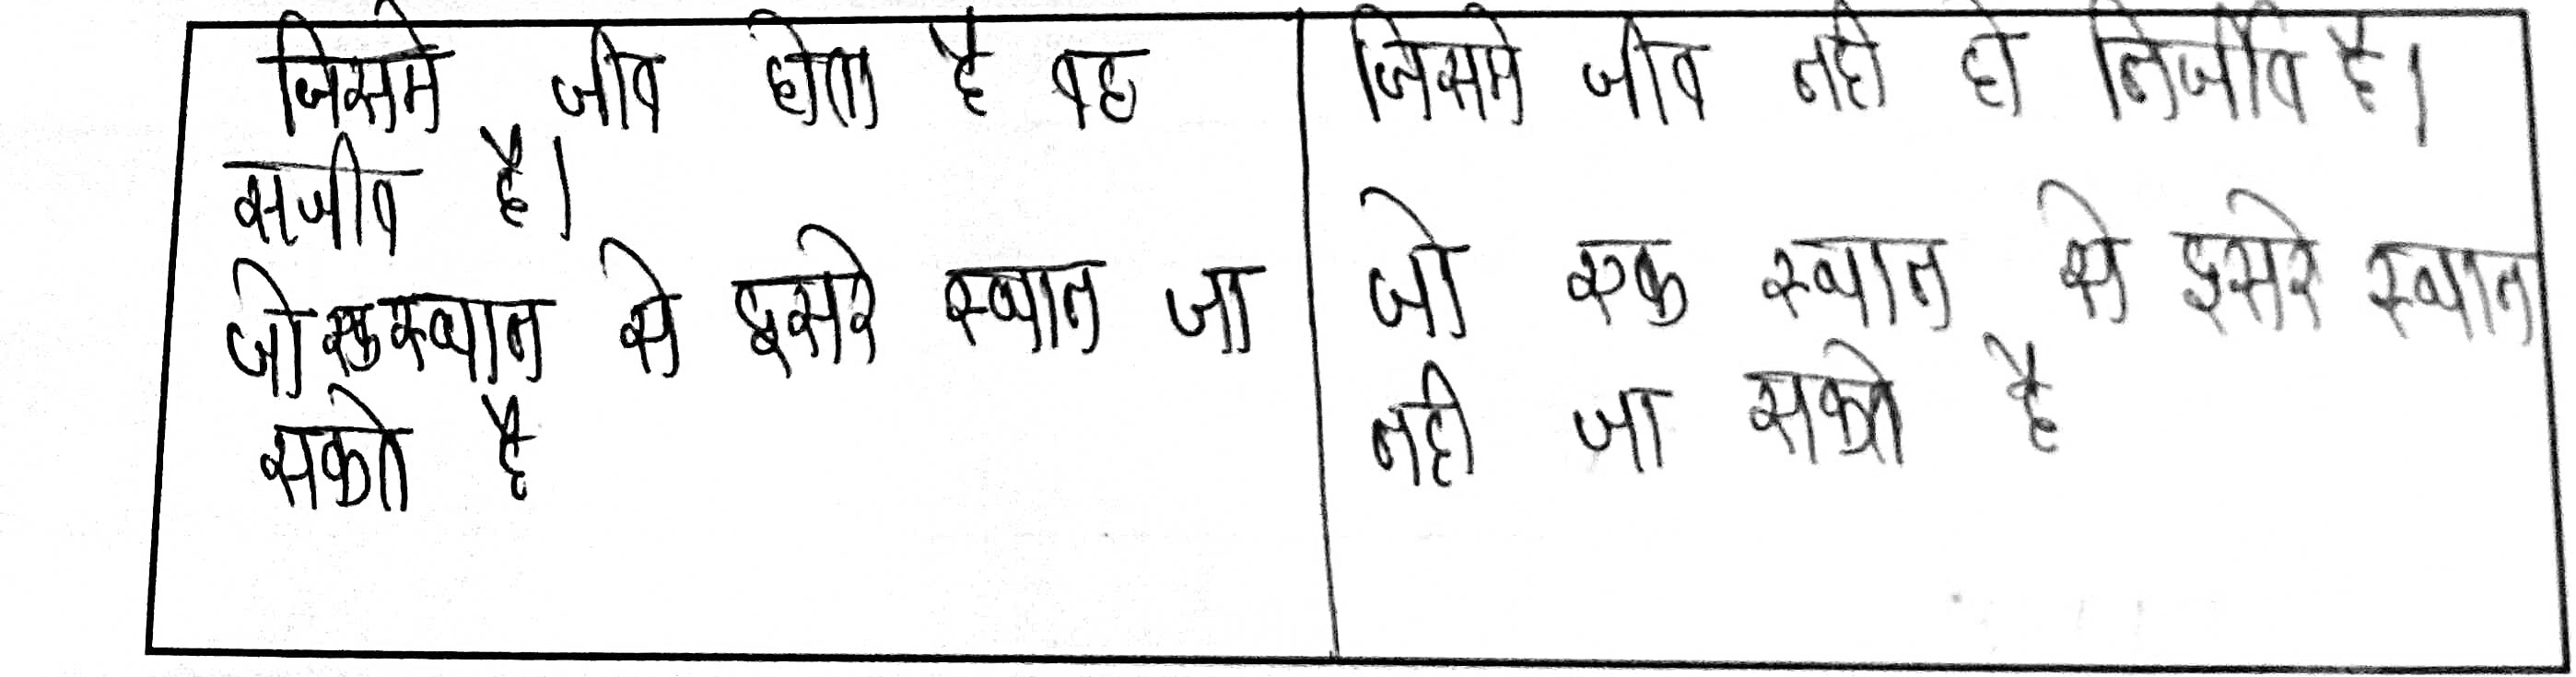 जिसमे जीव होता है वह
सजीव है।
जो एक स्थान से दुसरे स्थान जा
सकते है
जिसमे जीव नही हो निर्जीव है।
जो एक स्थान से दुसरे स्थान
नही जा सकते है